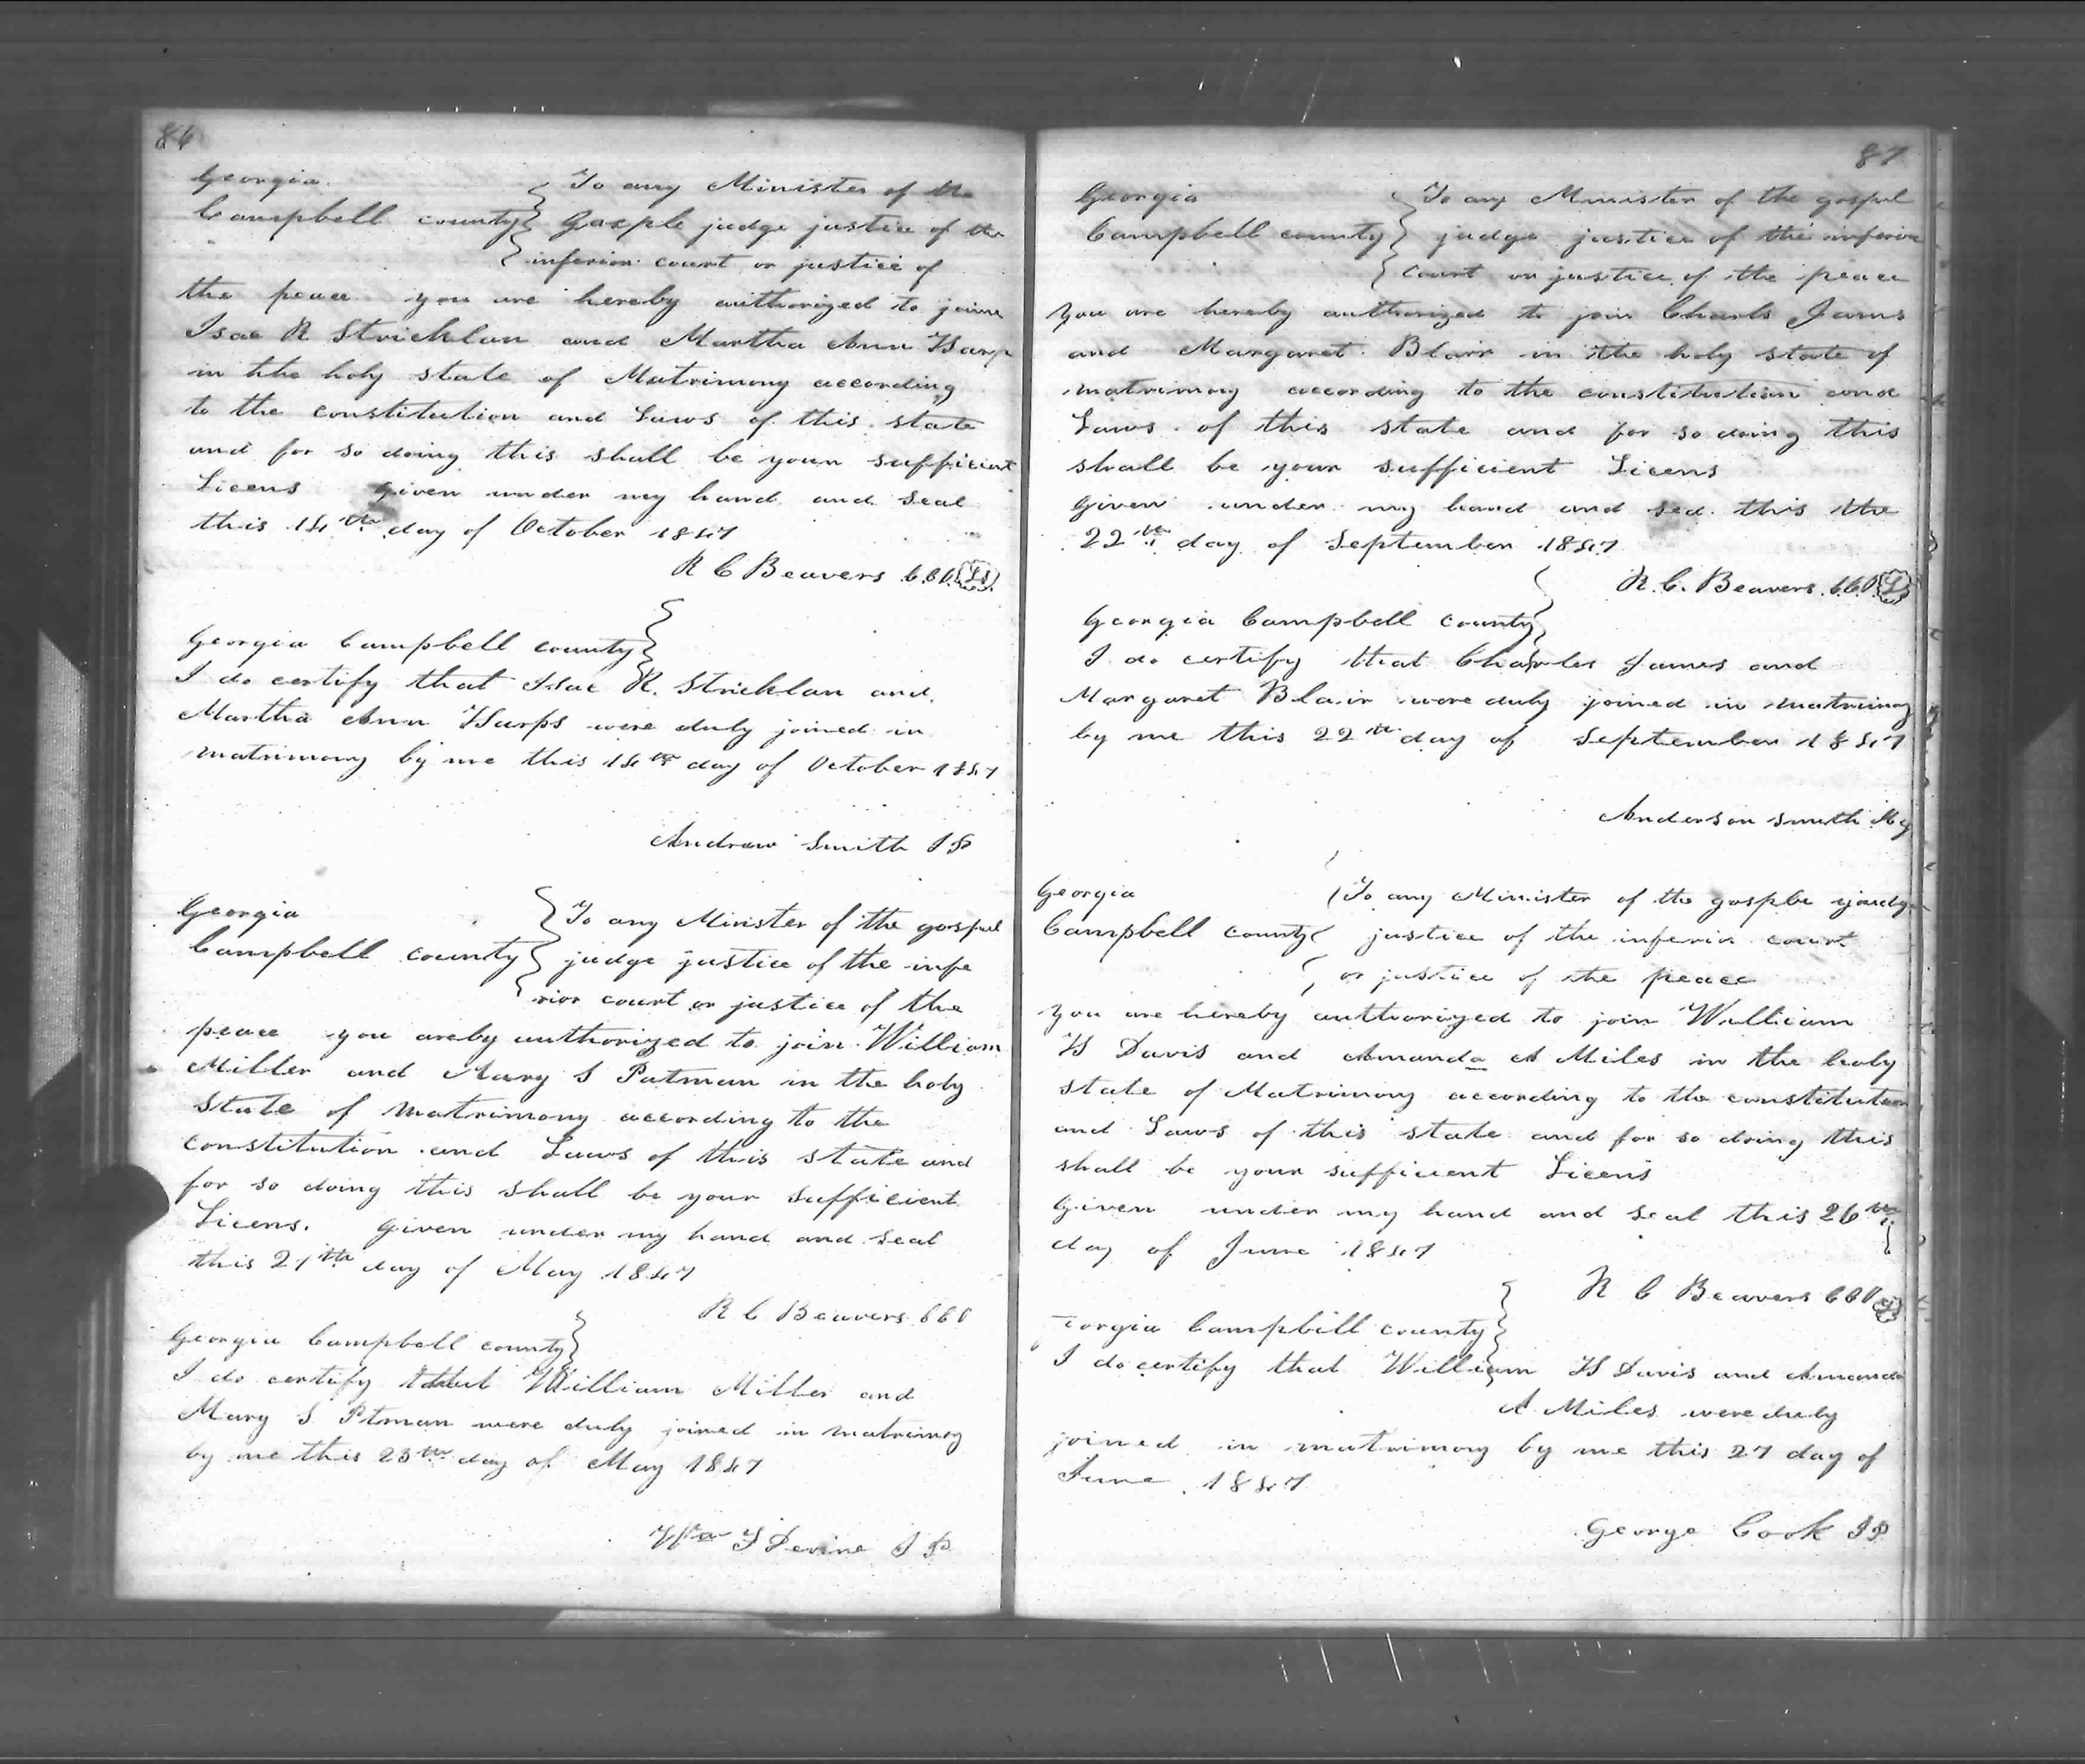 86
Georgia
Campbell county
To any Minister of the
Gosple judge justice of the
inferior court or justice of
the peace you are hereby authorized to joine
Isac R Stricklan and Martha Ann Harp
in the holy state of Matrimony according
to the constitution and Laws of this state
and for so doing this shall be your sufficient
Licens given under my hand and seal
this 14th day of October 1847
R C Beavers CCO LS
Georgia Campbell county
I do certify that Isac R. Stricklan and
Martha Ann Harps were duly joined in
matrimony by me this 14th day of October 1847
Andrew Smith JP
Georgia
Campbell county
To any Minister of the gospul
judge justice of the infe
rior court or justice of the
peace you areby authorized to join William
Miller and Mary S Patman in the holy
State of Matrimony according to the
constitution and Laws of this state and
for so doing this shall be your sufficient
Licens. Given under my hand and seal
this 21th day of May 1847
R C Beavers CCO
Georgia Campbell county
I do certify that William Miller and
Mary S Ptman were duly joined in matrimoy
by me this 23th day of May 1847
Wm Devine JP
87
Georgia
Campbell county
To any Minister of the gospul
judge justice of the inferior
court or justice of the peace
you are hereby authorized to join Charls James
and Margaret Blair in the holy state of
matrimony according to the constitution and
Laws of this state and for so doing this
shall be your sufficient Licens
given under my hand and sea this the
22th day of September 1847
R. C. Beavers CCO LS
Georgia Campbell county
I do certify that Charles James and
Margaret Blair were duly joined in matrimoy
by me this 22th day of September 1847
Anderson Smith Mg
Georgia
Campbell county
To any Minister of the gosple judge
justice of the inferior court
or justice of the peace
you are hereby authorized to join William
H Davis and Amanda A Miles in the holy
state of Matrimony according to the constitution
and Laws of this state and for so doing this
shall be your sufficient Licens
Given under my hand and seal this 26th
day of June 1847
R C Beavers CCO LS
eorgia Campbell county
I do certify that William H Davis and Amanda
A Miles were duly
joined in matrimony by me this 27 day of
June 1847
George Cook JP